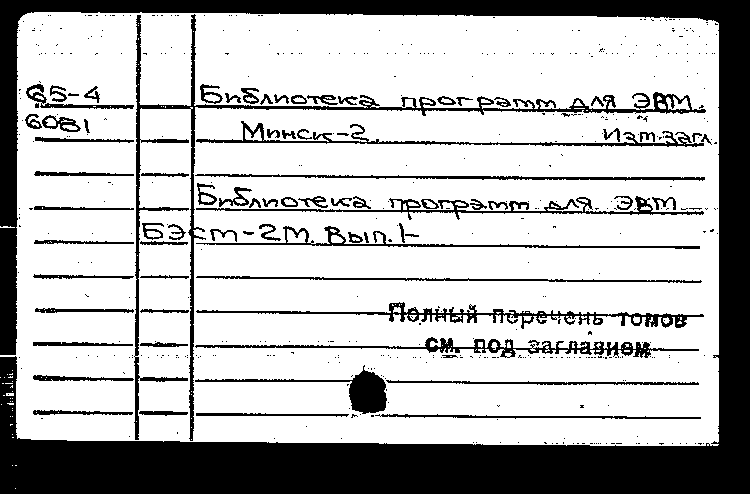 65-4 Библиотека программ для ЭВМ.
6081 Минск-2. Изм.загл.
Библиотека программ для ЭВМ
БЭсм-2М. Вып.1-
Полный перечень томов
см. под заглавием